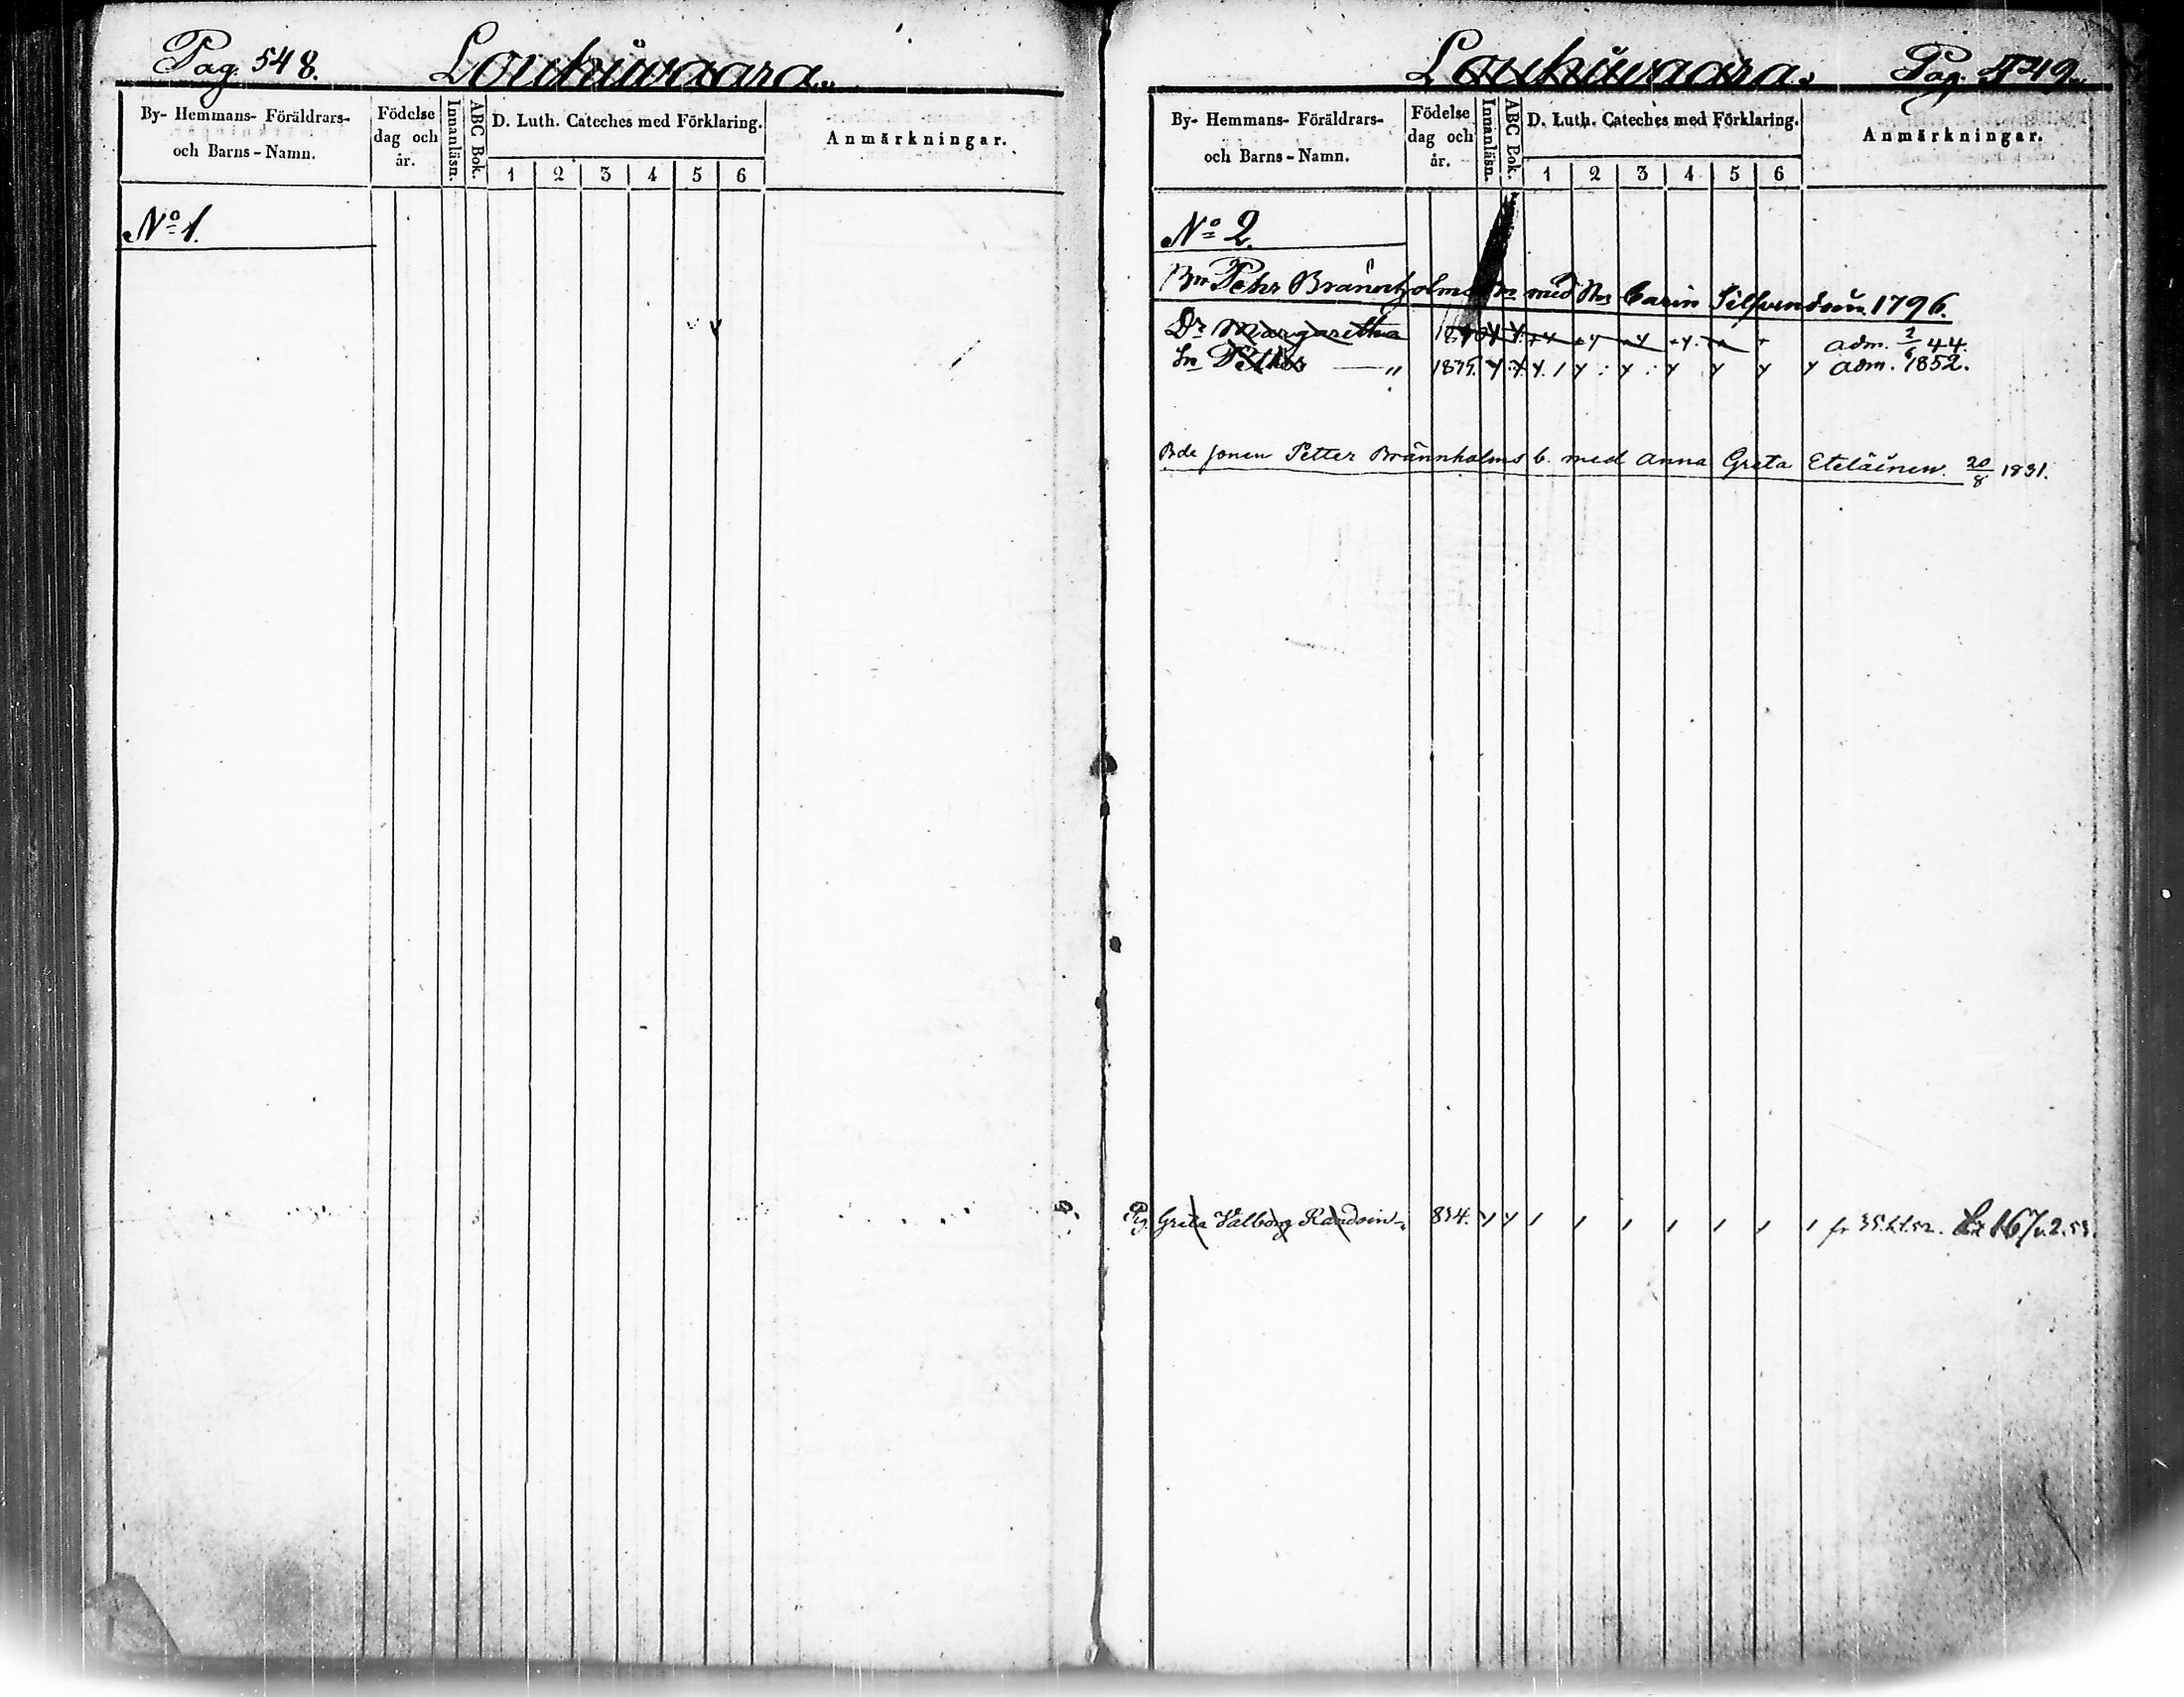 Pag. 548. Louhiwaara.
By- Hemmans- Föräldrars- och Barns-Namn.
Födelse dag och år.
Innanläsn.
ABC Bok.
D. Luth. Cateches med Förklaring.
1 2 3 4 5 6
Anmärkningar.
No 1.
Louhiwaara. Pag. 549.
By- Hemmans- Föräldrars- och Barns-Namn.
Födelse dag och år.
Innanläsn.
ABC Bok.
D. Luth. Cateches med Förklaring.
1 2 3 4 5 6
Anmärkningar.
No 2.
Bn Pehr Brännholms med Carin 1796.
Dr Margaretha adm. 2/6 44.
Sn Petter — " adm. 1852.
Bde sonen Petter Brännholms b. med Anna Greta Eteläinen. 20/8 1831.
Pig. Greta Valborg 834. fr 167